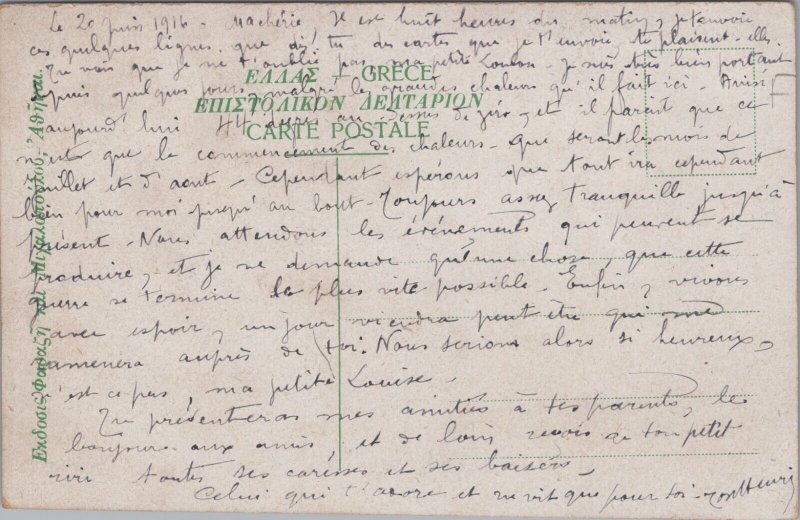 Le 20 Juin 1916 - Ma chérie, Il est huit heures du matin, je t'envoie
ces quelques lignes que dis tu des cartes que je t'envoie, te plaisent-elles.
Tu vois que je ne t'oublie pas ma petite Louise - Je suis très bien portant
depuis quelques jours, malgré les grandes chaleurs qu'il fait ici - Ainsi
aujourd'hui 44 degrés au dessus de zéro, et il parait que ce
n'est que le commencement des chaleurs - Que seront les mois de
Juillet et d'aout - Cependant espérons que tout ira cependant
bien pour moi jusqu'au bout - Toujours assez tranquille jusqu'à
présent - Nous attendons les événements qui peuvent se
produire, et je ne demande qu'une chose, que cette
guerre se termine le plus vite possible - Enfin, vivons
avec espoir, un jour viendra peut être qui me
amenera auprès de toi. Nous serions alors si heureux,
n'est ce pas, ma petite Louise -
Tu présenteras mes amitiés à tes parents, le
bonjour aux amis, et de loin reçois de ton petit
riri toutes ses caresses et ses baisers -
Celui qui t'adore et ne vit que pour toi - ton Henri
ΕΛΛΑΣ - GRÈCE
ΕΠΙΣΤΟΛΙΚΟΝ ΔΕΛΤΑΡΙΟΝ
CARTE POSTALE
Εκδοσις Φαραζῆ καὶ Μιχαλοπούλου, Ἀθῆναι.
F